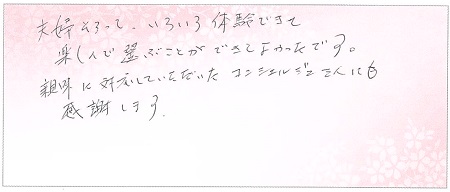 夫婦そろって、いろいろ体験できて
楽しんで選ぶことができてよかったです。
親身に対応していただいたコンシェルジュさんにも
感謝します。